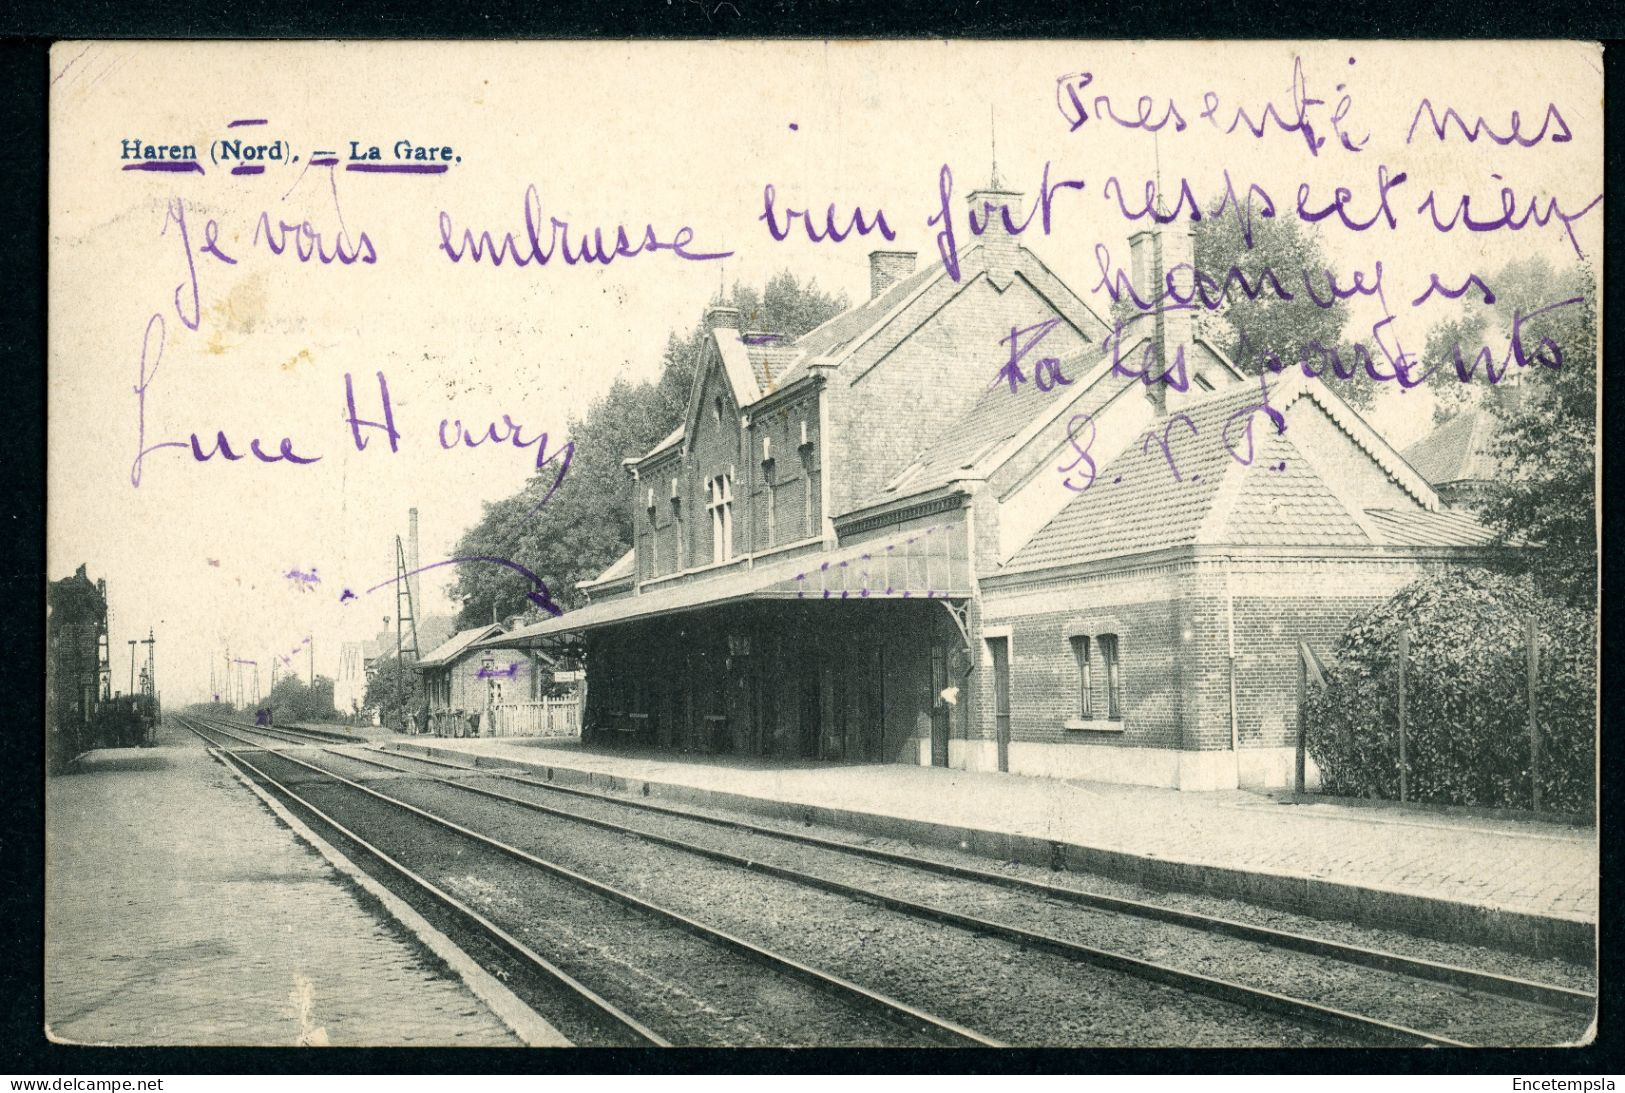 Haren (Nord). — La Gare.
Je vous embrasse bien fort
Luce
Presenté mes
respectueux
à tes parents
S.V.P.
Website : www.delcampe.net
Encetempsla